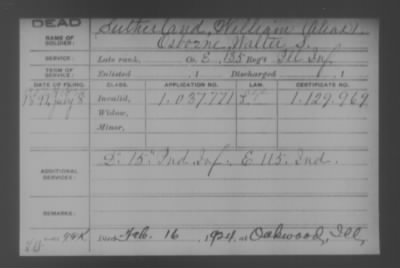 DEAD
NAME OF SOLDIER: Sutherland, William (alias).
Osborne, Walter S.
SERVICE: Late rank, Co. E, 135 Reg't Ill Inf
TERM OF SERVICE: Enlisted , 1 Discharged , 1
DATE OF FILING. CLASS. APPLICATION NO. LAW. CERTIFICATE NO.
1892, July 8 Invalid, 1.037.771 1.129.969
Widow,
Minor,
ADDITIONAL SERVICES: 15" Ind. Inf. E 115. Ind.
REMARKS:
Died Feb. 16, 1924, at Oakwood, Ill,